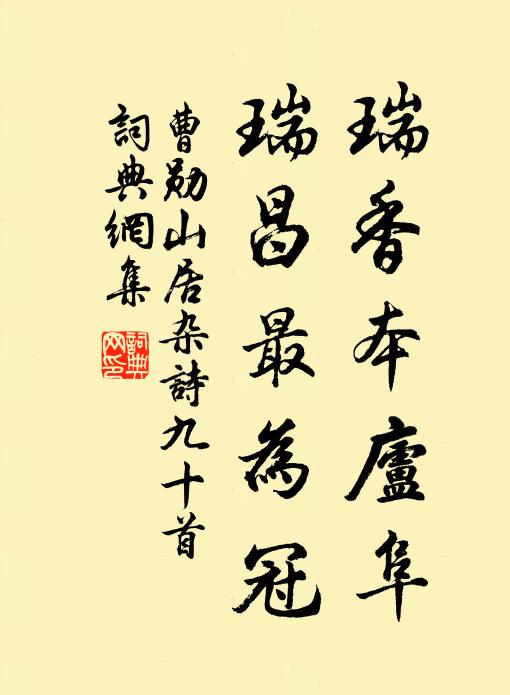 瑞香本廬阜
瑞昌最為冠
曹勛山居杂詩九十首
詞典網集
詞典網印